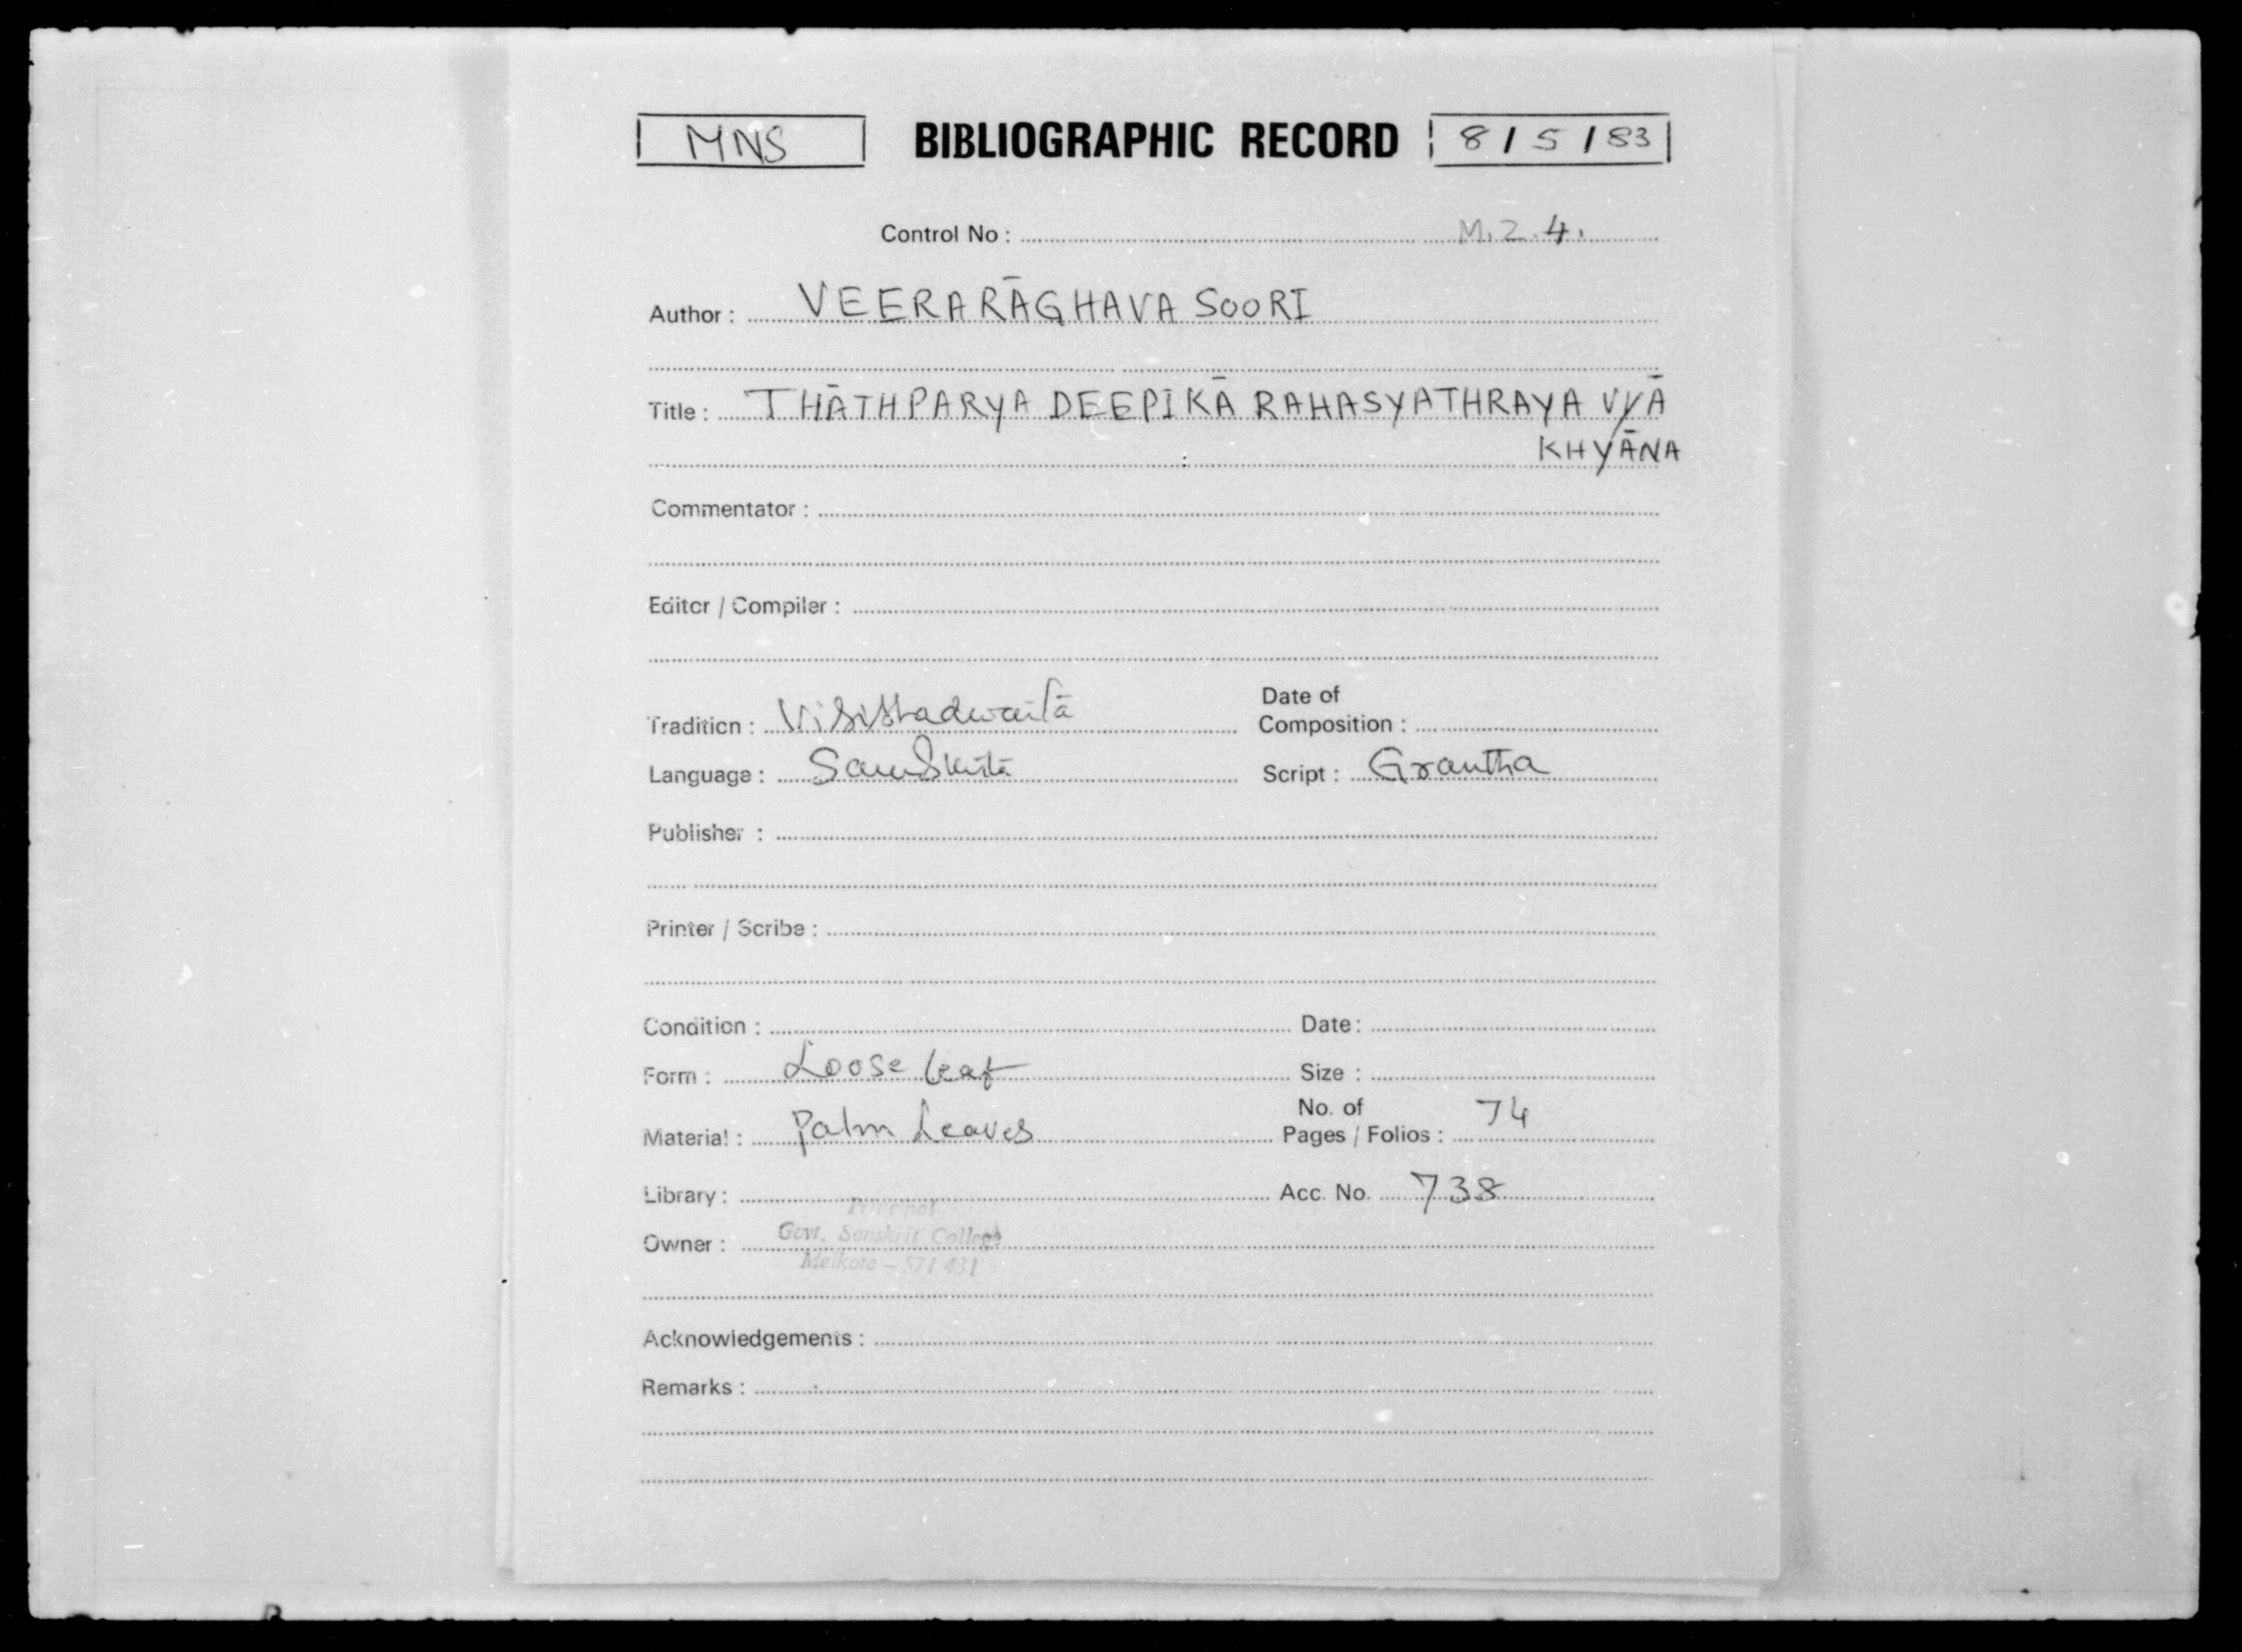 MNS BIBLIOGRAPHIC RECORD 8/5/83
Control No : M.2.4.
Author : VEERARĀGHAVA SOORI
Title : THĀTHPARYA DEEPIKĀ RAHASYATHRAYA VYĀ
KHYĀNA
Commentator :
Editor / Compiler :
Tradition : Visishtadwaitā
Date of
Composition :
Language : Samskritā Script : Grantha
Publisher :
Printer / Scribe :
Condition : Date :
Form : Loose leaf Size :
Material : Palm Leaves
No. of
Pages / Folios : 74
Library : Acc. No. 738
Principal
Owner : Govt. Sanskrit College
Melkote – 571 431
Acknowledgements :
Remarks :